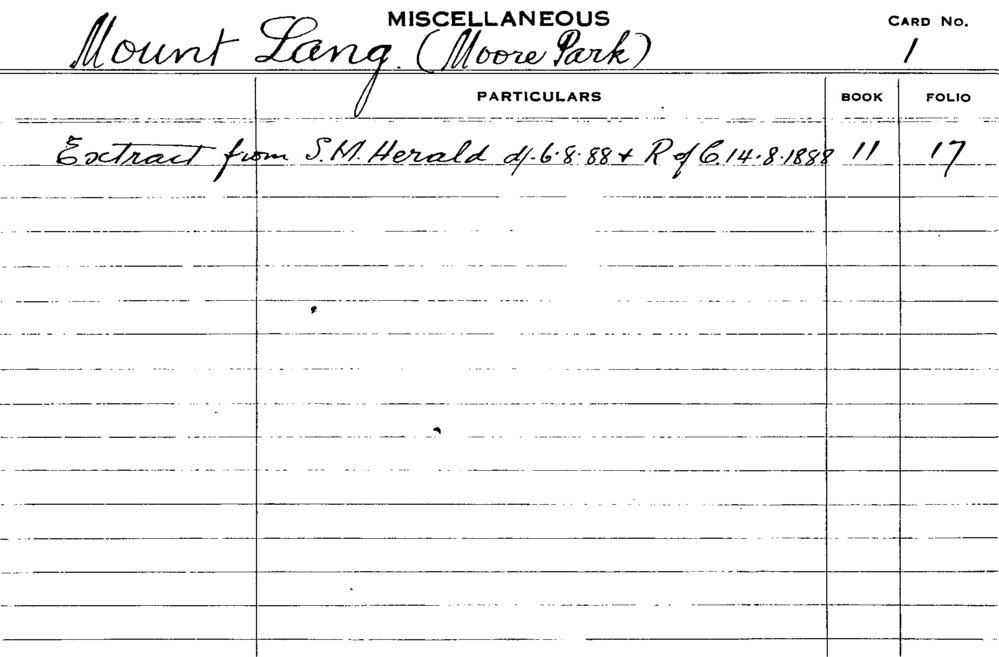 MISCELLANEOUS
CARD No.
Mount Lang. (Moore Park)
1
PARTICULARS
BOOK
FOLIO
Extract from S.M. Herald d/. 6.8.88 + R of C. 14.8.1888 11 17